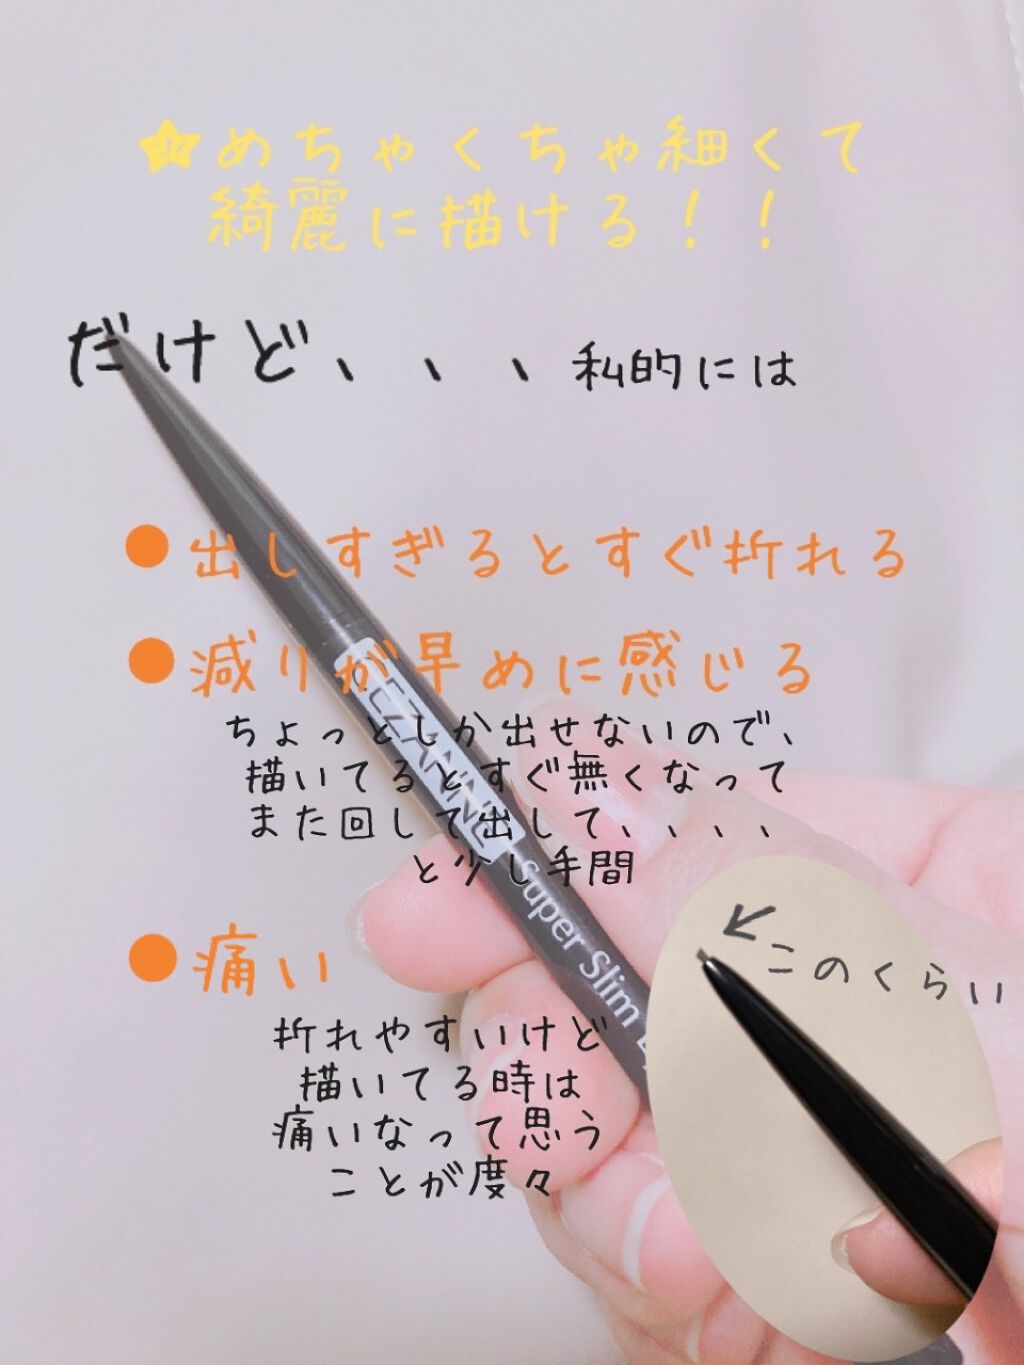 ★めちゃくちゃ細くて
綺麗に描ける！！
だけど、、、私的には
●出しすぎるとすぐ折れる
●減りが早めに感じる
ちょっとしか出せないので、
描いてるとすぐ無くなって
また回して出して、、、、
と少し手間
CEZANNE
Super Slim
このくらい
●痛い
折れやすいけど
描いてる時は
痛いなって思う
ことが度々